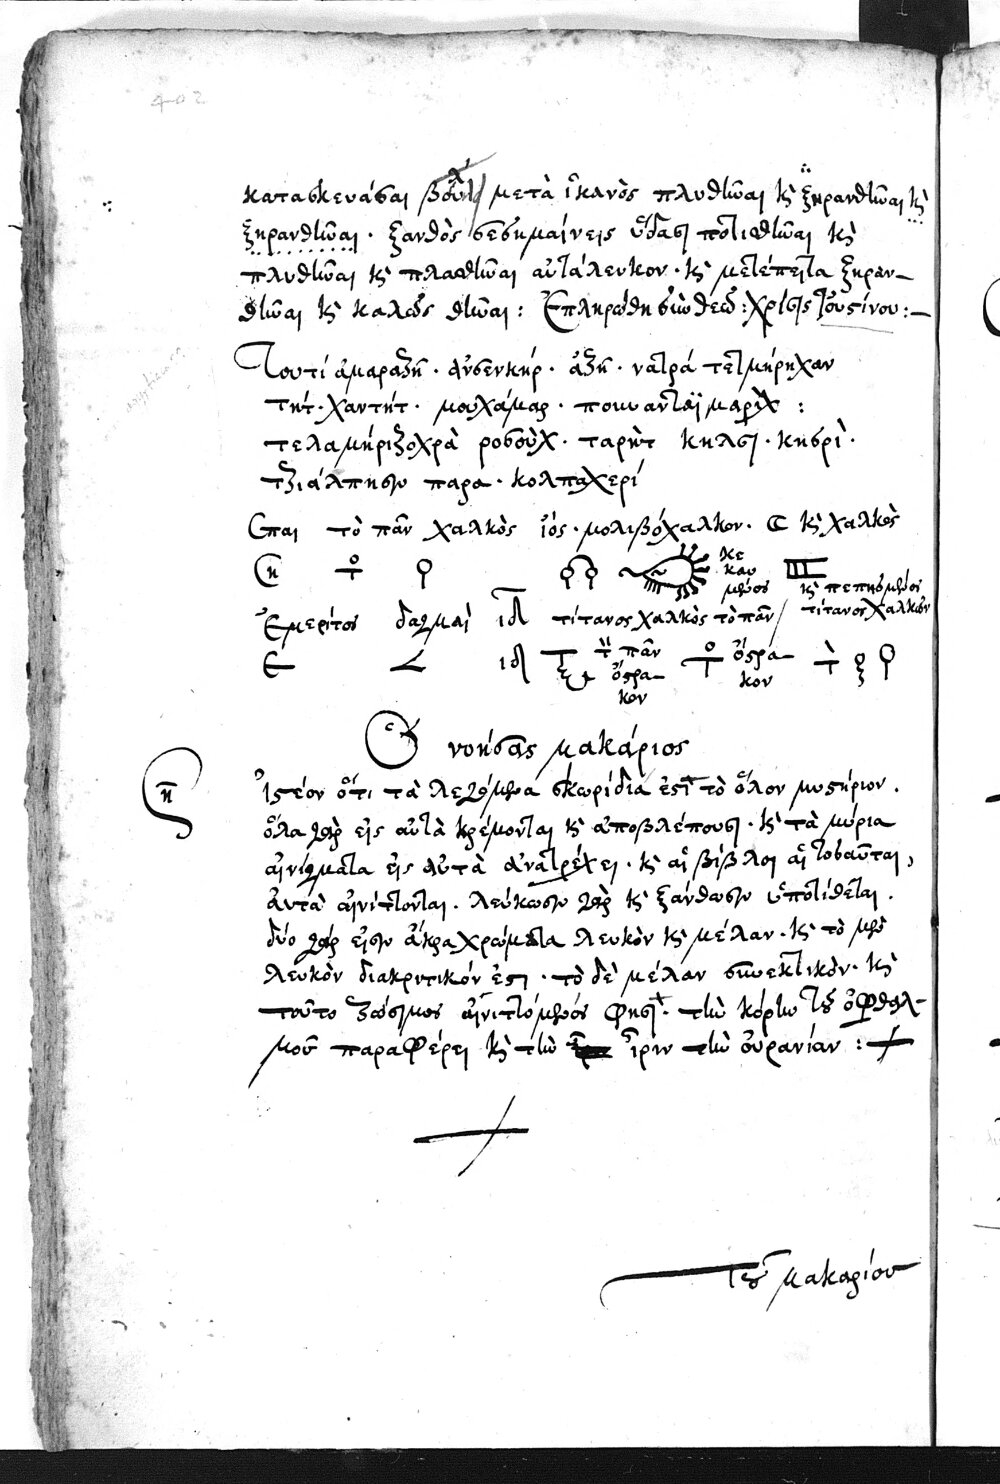 402
κατασκευάσαι μετὰ ἱκανὸς πλυθῶσαι κ̀ς ξηρανθῶσαι κ̀ς
ξηρανθῶσαι · ξανθὸς σεσημαίνεις ὕδασι ποτισθῶσαι κ̀ς
πλυθῶσαι κ̀ς πλασθῶσαι αὐτάλευκον · κ̀ς μετέπειτα ξηραν–
θῶσαι κ̀ς καλῶς θῶσαι : Ἐπληρώθη σὺν θεῷ : Χρίσις Ἰουστίνου :–
Τουτί ἀμαραζῆ · αὐσενκήρ · ἀζῆ · νατρά τετμήρηχαν
τήτ · χαντήτ · μουχάμαρ · μαρίχ :
τελαμήριζοχρὰ ροσούχ · ταρὴτ κηλσι · κησρὶ ·
τζιάλπησιν παρα · κολπαχερί
Ϲπαι τὸ πᾶν χαλκὸς ἰός · μολιβόχαλκον · Ϲ κ̀ς χαλκὸς
κεκαυμένος
κ̀ς πεπησμένος
Ἐμερίτος δαζμαὶ ιδ τίτανος χαλκὸς τὸ πᾶν / τίτανος χαλκὸν
Ε ∠ ιδ τ̀ πᾶν ὄστρακον ὄστρακον τ̀
Ὁ νοήσας μακάριος
Ἰστέον ὅτι τὰ λεγόμενα σκωρίδια ἐστὶ τὸ ὅλον μυστήριον .
ὅλα γὰρ εἰς αὐτὰ κρέμονται κ̀ς ἀποβλέπουσι · κ̀ς τὰ μύρια
αἰνίγματα εἰς αὐτὰ ἀνατρέχει · κ̀ς αἱ βίβλοι αἱ τοσαῦται,
αὐτὰ αἰνίττονται . λεύκωσιν γὰρ κ̀ς ξάνθωσιν ὑποτίθεται .
δύο γάρ εἰσιν ἄκρα χρώματα λευκὸν κ̀ς μέλαν · κ̀ς τὸ μὲν
λευκὸν διακριτικόν ἐστι · τὸ δὲ μέλαν συνεκτικὸν · κ̀ς
τοῦτο ζώσιμος αἰνιττόμενος φησὶ · τὴν κόρην τοῦ ὀφθαλ–
μοῦ παραφέρει κ̀ς τὴν ἶριν τὴν οὐρανίαν :
τοῦ μακαρίου